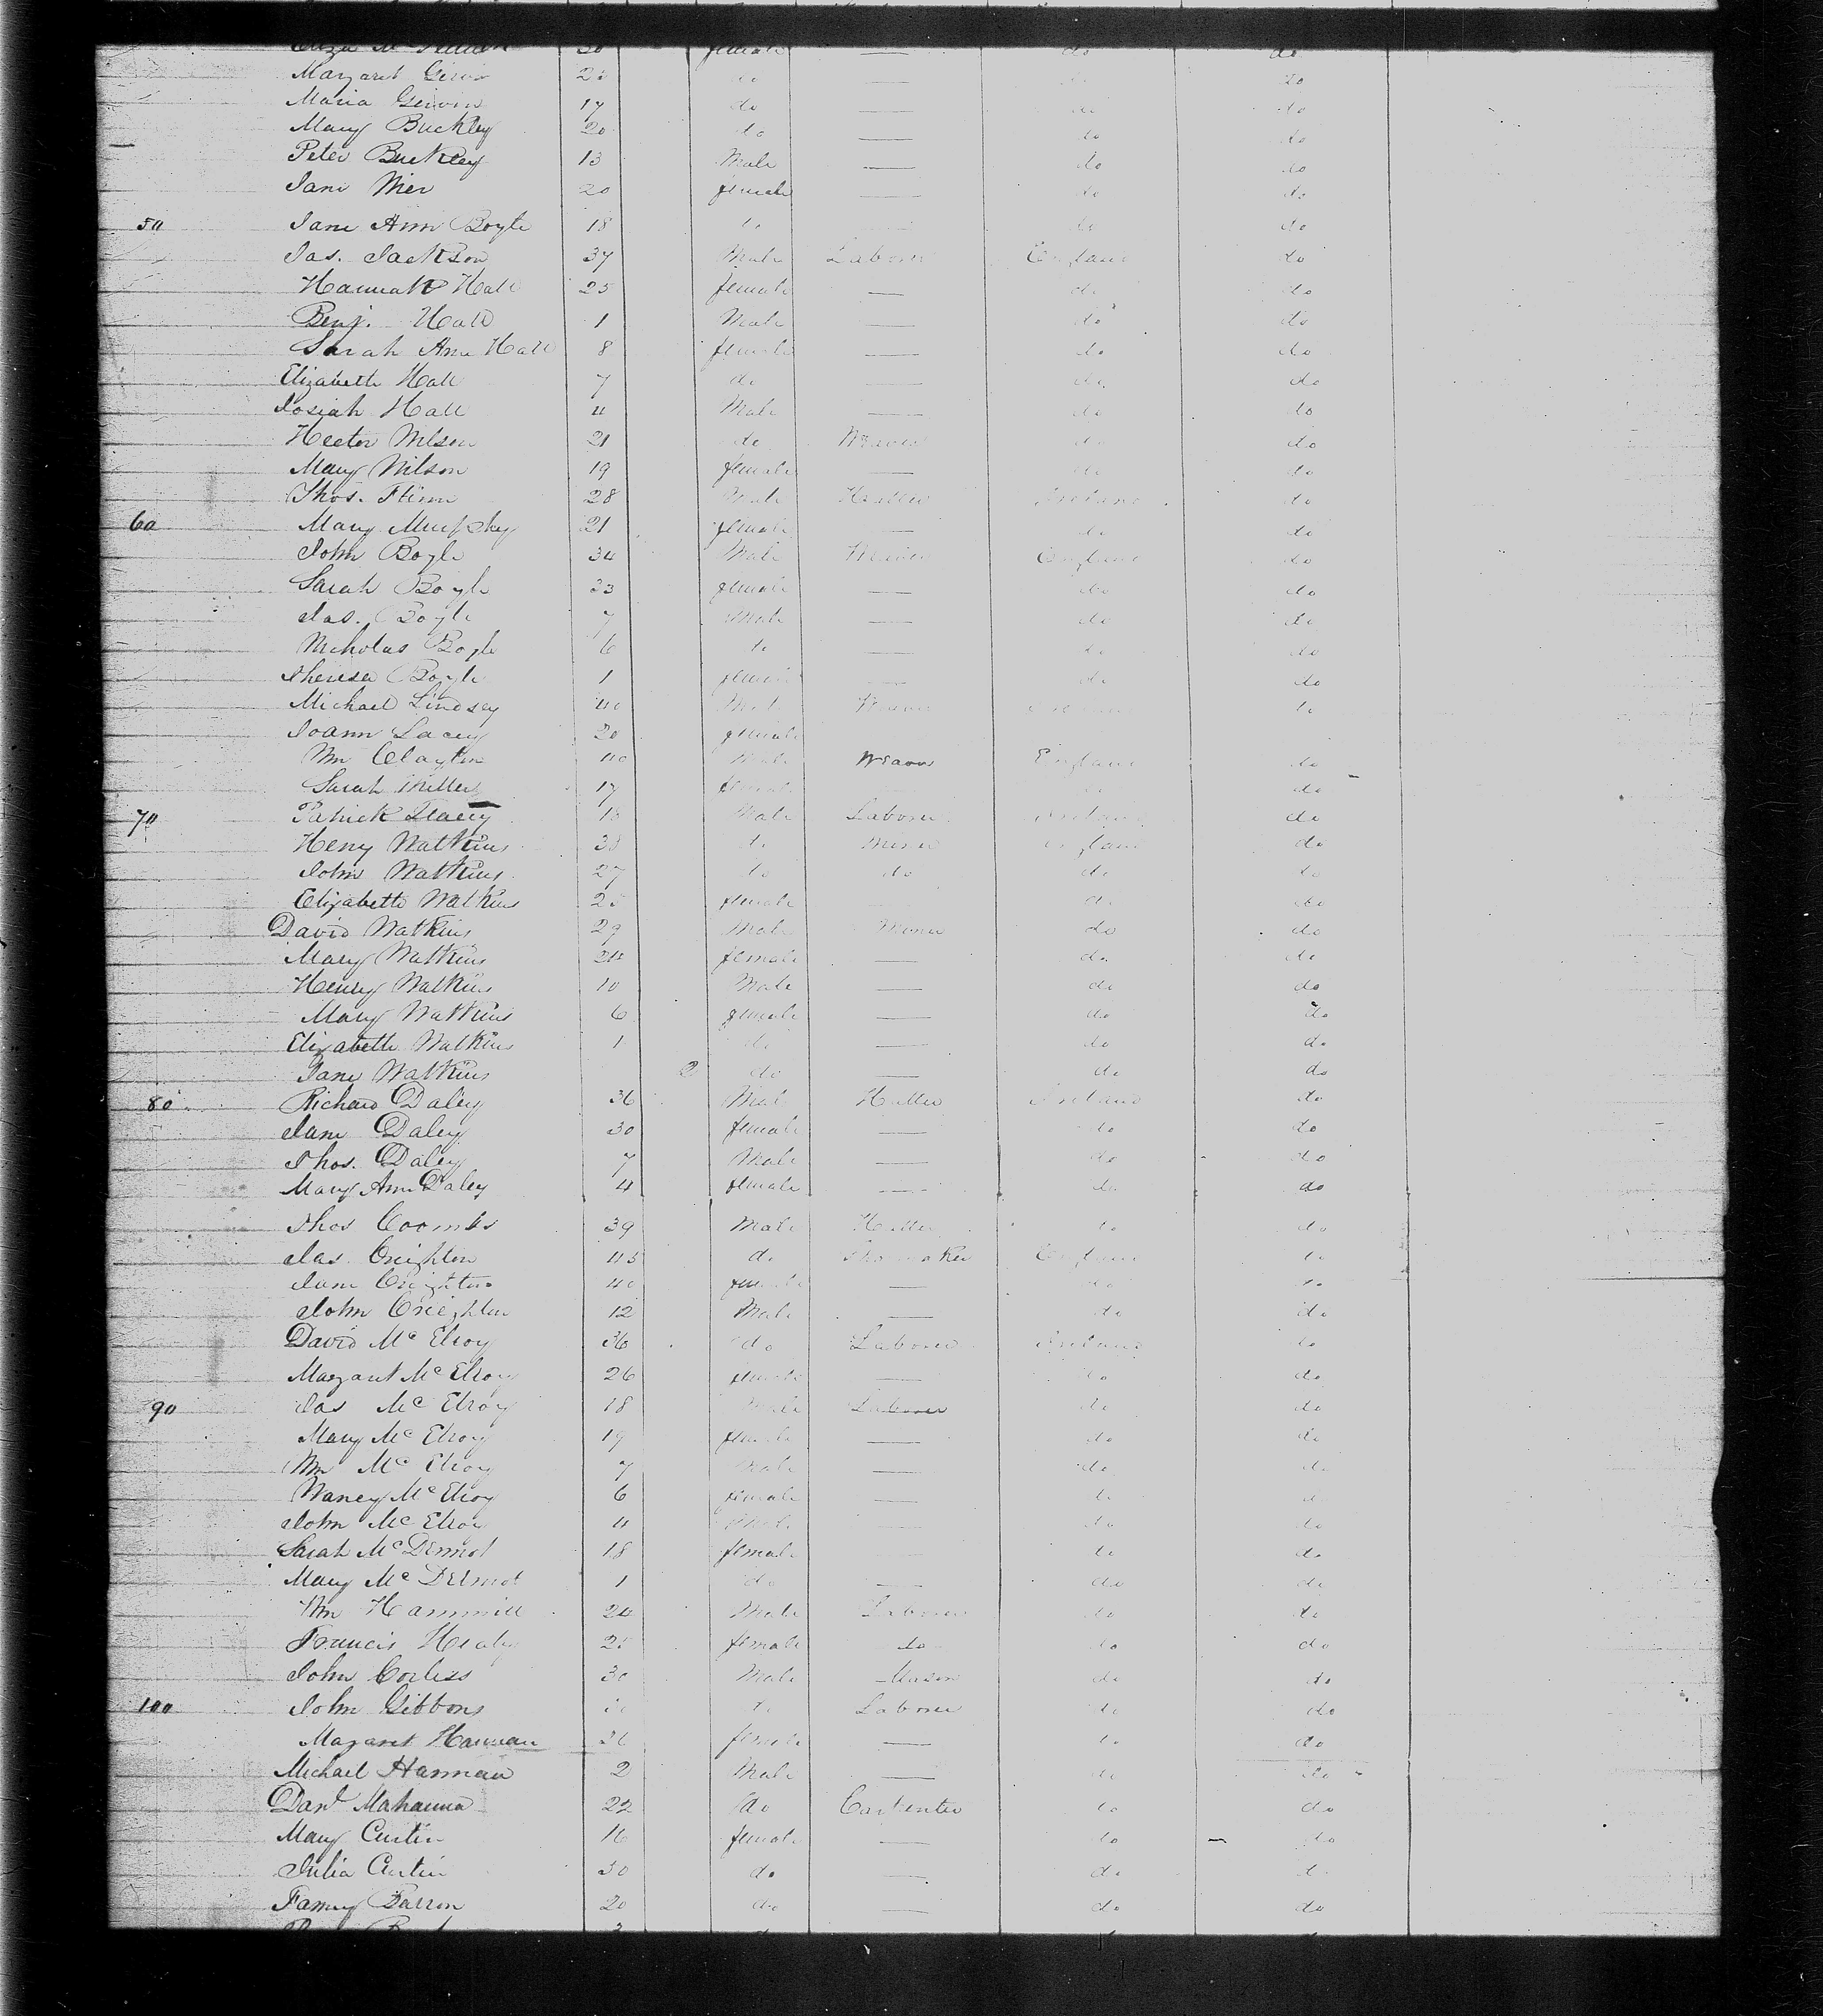 Margaret 20 do do
Maria Girvin 17 do — do do
Mary Buckley 20 do — do do
Peter Buckley 13 Male — do do
Jane Mier 20 female do do
50 Jane Ann Boyle 18 do do do
Jas. Jackson 37 Male Laborer England do
Hannah Hall 25 female — do do
Benj. Hall 1 Male — do do
Sarah Ann Hall 8 female — do do
Elizabeth Hall 7 do — do do
Josiah Hall 4 Male — do do
Hector Wilson 21 do Weaver do do
Mary Wilson 19 female — do do
Thos. Flinn 28 Male Hatter Ireland do
60 Mary Murphy 21 female — do do
John Boyle 34 Male England do
Sarah Boyle 33 female — do do
Jas. Boyle 7 Male — do do
Nicholas Boyle 6 do — do do
Theresa Boyle 1 female — do do
Michael Lindsey 40 Male do
Joann Lacey 30 female
Wm Clayton 40 Male Weaver England do
Sarah Miller 17 female do
70 Patrick Lacey 18 Male Laborer Ireland do
Heny Watkins 38 do Miner England do
John Watkins 27 do do do do
Elizabeth Watkins 25 female do do
David Watkins 29 Male Miner do do
Mary Watkins 24 female — do do
Henry Watkins 10 Male — do do
Mary Watkins 6 female — do do
Elizabeth Watkins 1 do — do do
Jane Watkins 2 do — do do
80 Richard Daley 36 Male Hatter Ireland do
Jane Daley 30 female — do do
Thos. Daley 7 Male — do do
Mary Ann Daley 4 female — do do
Thos Coombs 39 Male Hatter do do
Jas. Creighton 45 do Shoemaker England do
Jane Creighton 40 female — do do
John Creighton 12 Male — do do
David Mc Elroy 36 do Laborer Ireland do
Margaret Mc Elroy 26 female — do do
90 Jas Mc Elroy 18 Male Laborer do do
Mary Mc Elroy 19 female — do do
Wm Mc Elroy 7 Male — do do
Nancy Mc Elroy 6 female — do do
John Mc Elroy 4 Male — do do
Sarah Mc Dermot 18 female do do
Mary Mc Dermot 1 do — do do
Wm Hammill 24 Male Laborer do do
Francis Healy 25 female do do do
John Corliss 30 Male Mason do do
100 John Gibbons do Laborer do do
Magaret Hannan female — do do
Michael Hannan 2 Male — do do
Danl Mahanna 22 do Carpenter do do
Mary Curtin 16 female — do do
Julia Curtin 30 do — do do
Fanny Barron 20 do — do do